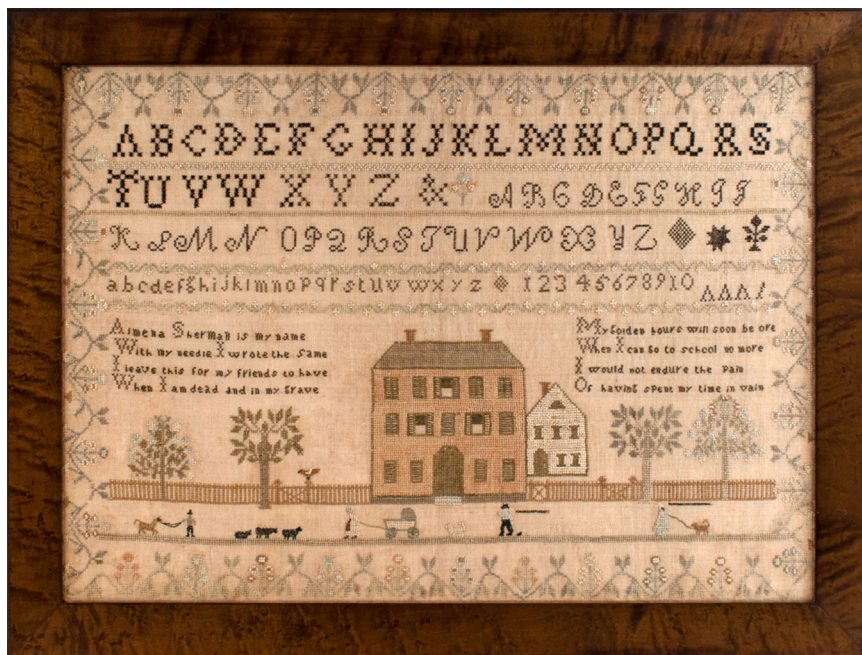 A B C D E F G H I J K L M N O P Q R S
T U V W X Y Z & A B C D E F G H I J
K L M N O P Q R S T U V W X Y Z
a b c d e f g h i j k l m n o p q r s t u v w x y z 1 2 3 4 5 6 7 8 9 10
Almena Sherman is my name
With my needle I wrote the Same
I leave this for my friends to have
When I am dead and in my Grave
My Golden hours will soon be ore
When I can Go to school no more
I would not endure the pain
Of having spent my time in vain